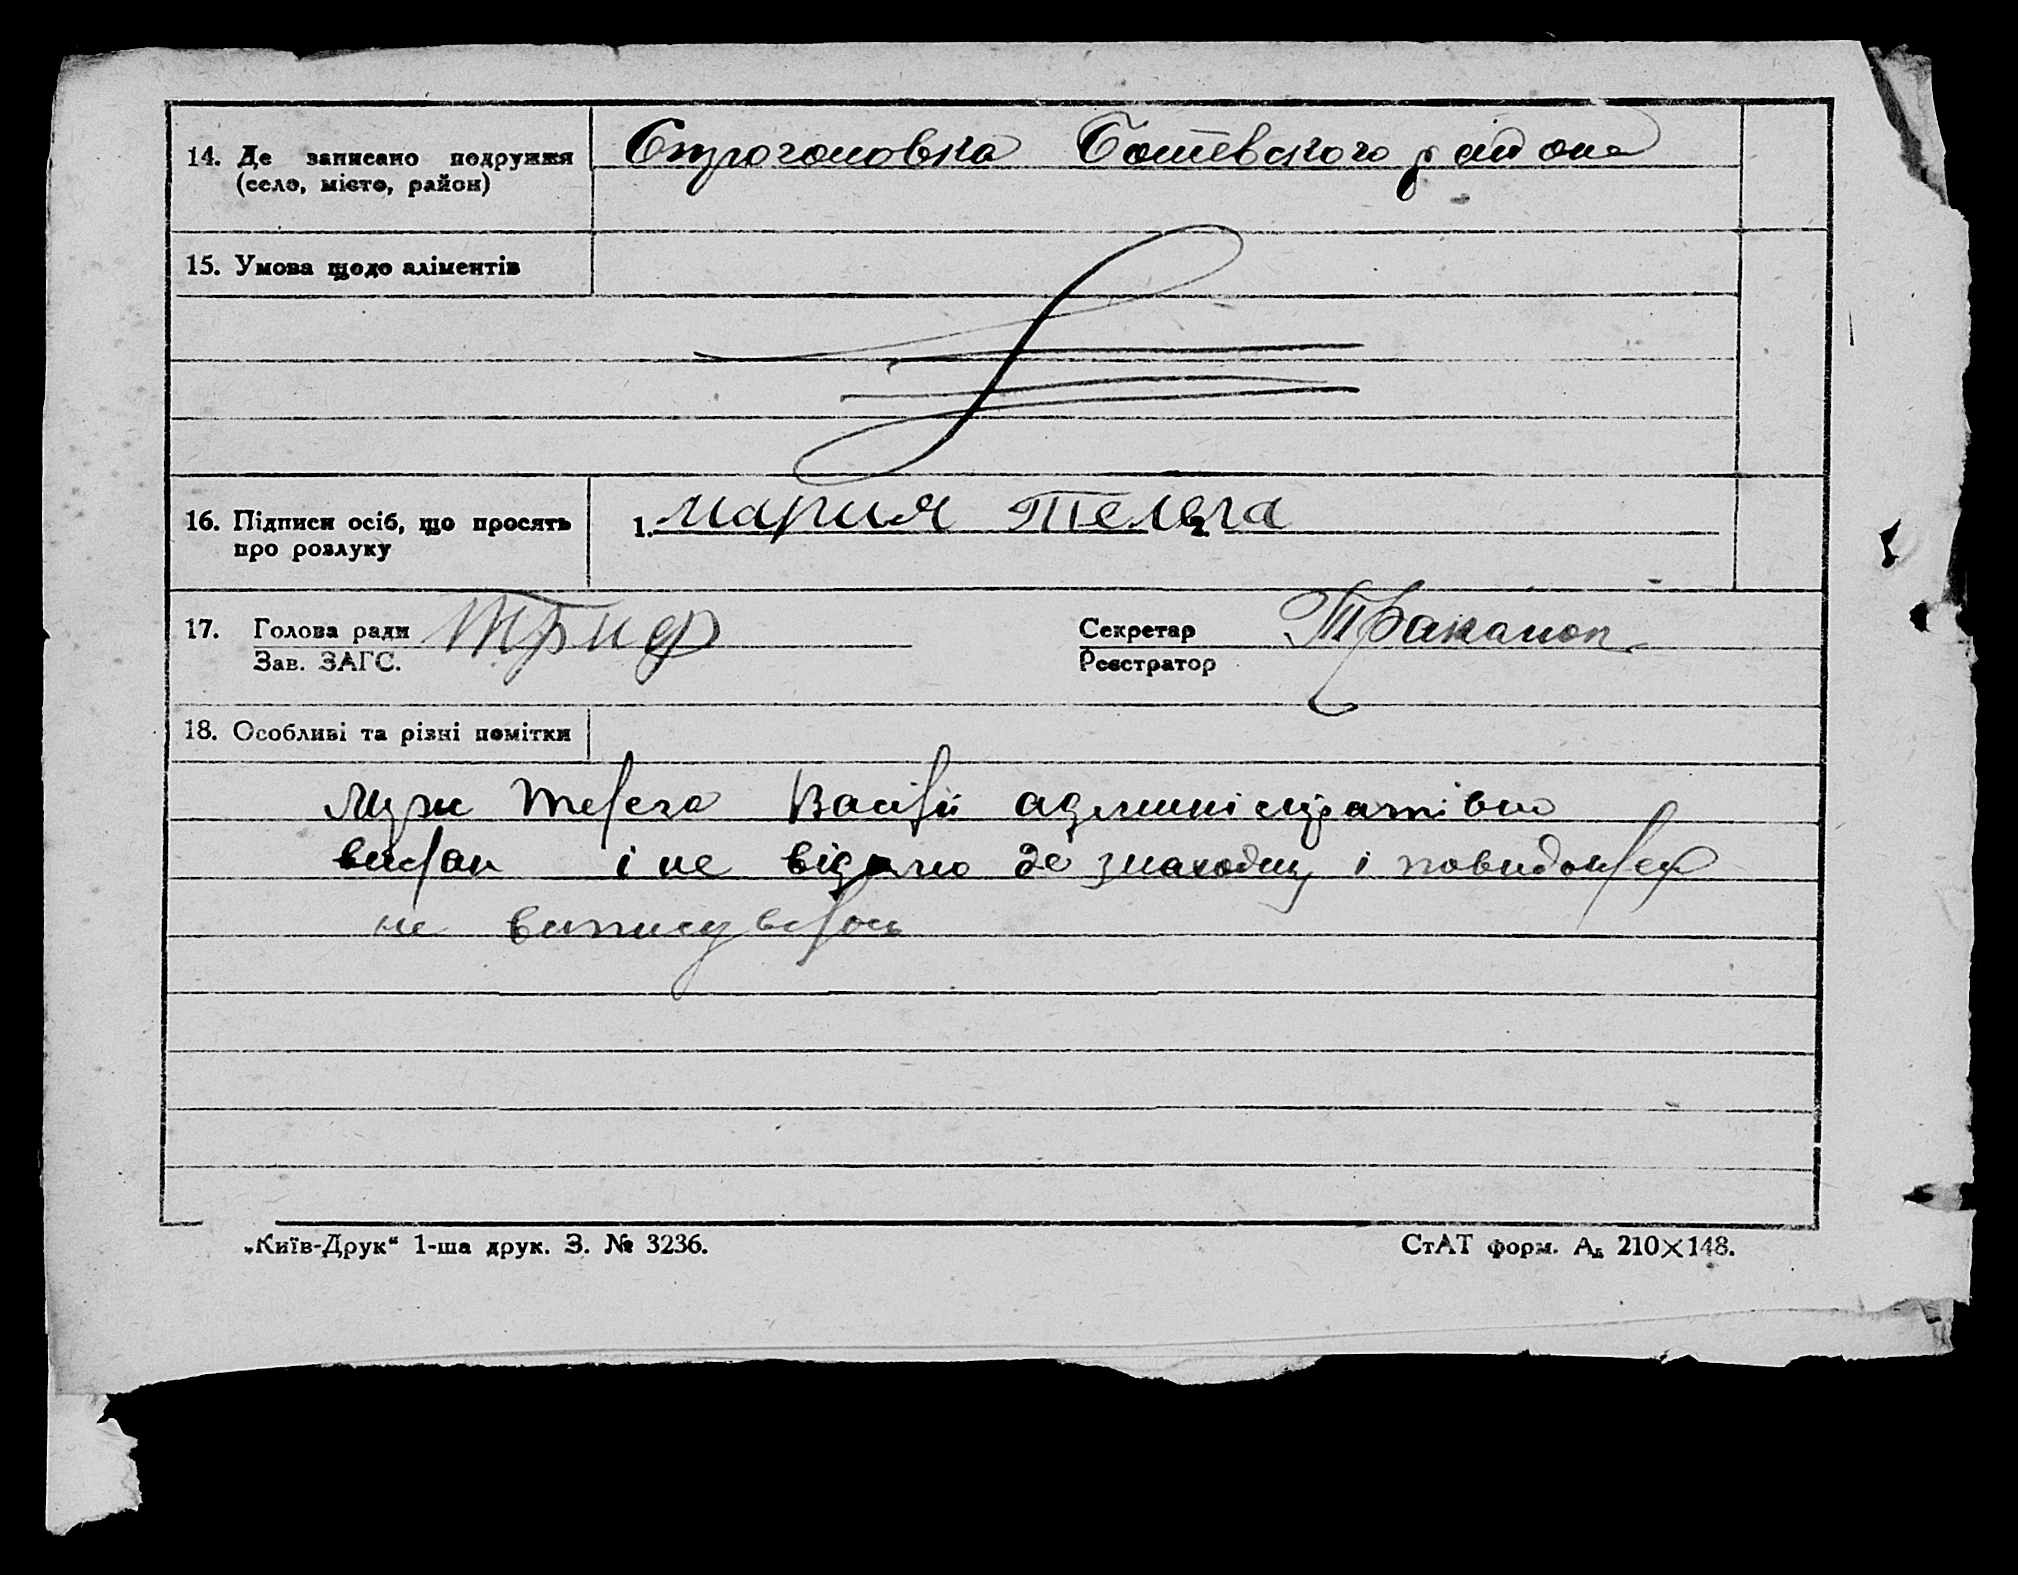 14. Де записано подружжя
(село, місто, район)
Строгоновка Ботевского району
15. Умова щодо аліментів
16. Підписи осіб, що просять
про розлуку
1. мария телега 2.
17. Голова ради
Зав. ЗАГС.
Секретар
Реєстратор
18. Особливі та різні помітки
Муж телега Васілій админістратівно
вислан і не відомо де знаходиц і повидомлен
не виписувалось
„Київ-Друк“ 1-ша друк. З. № 3236.
СтАТ форм. А₅ 210×148.